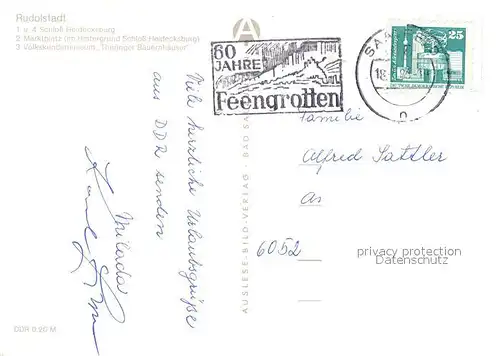 Rudolstadt
1 u. 4 Schloß Heidecksburg
2 Marktplatz (im Hintergrund Schloß Heidecksburg)
3 Volkskundemuseum "Thüringer Bauernhäuser"
60
JAHRE
Feengrotten
SAA
18
n
25
Viele herzliche Urlaubsgrüße
aus DDR senden
Milada
DDR 0,20 M
AUSLESE-BILD-VERLAG · BAD SA
Familie
Alfred Sattler
An
6052
privacy protection
Datenschutz